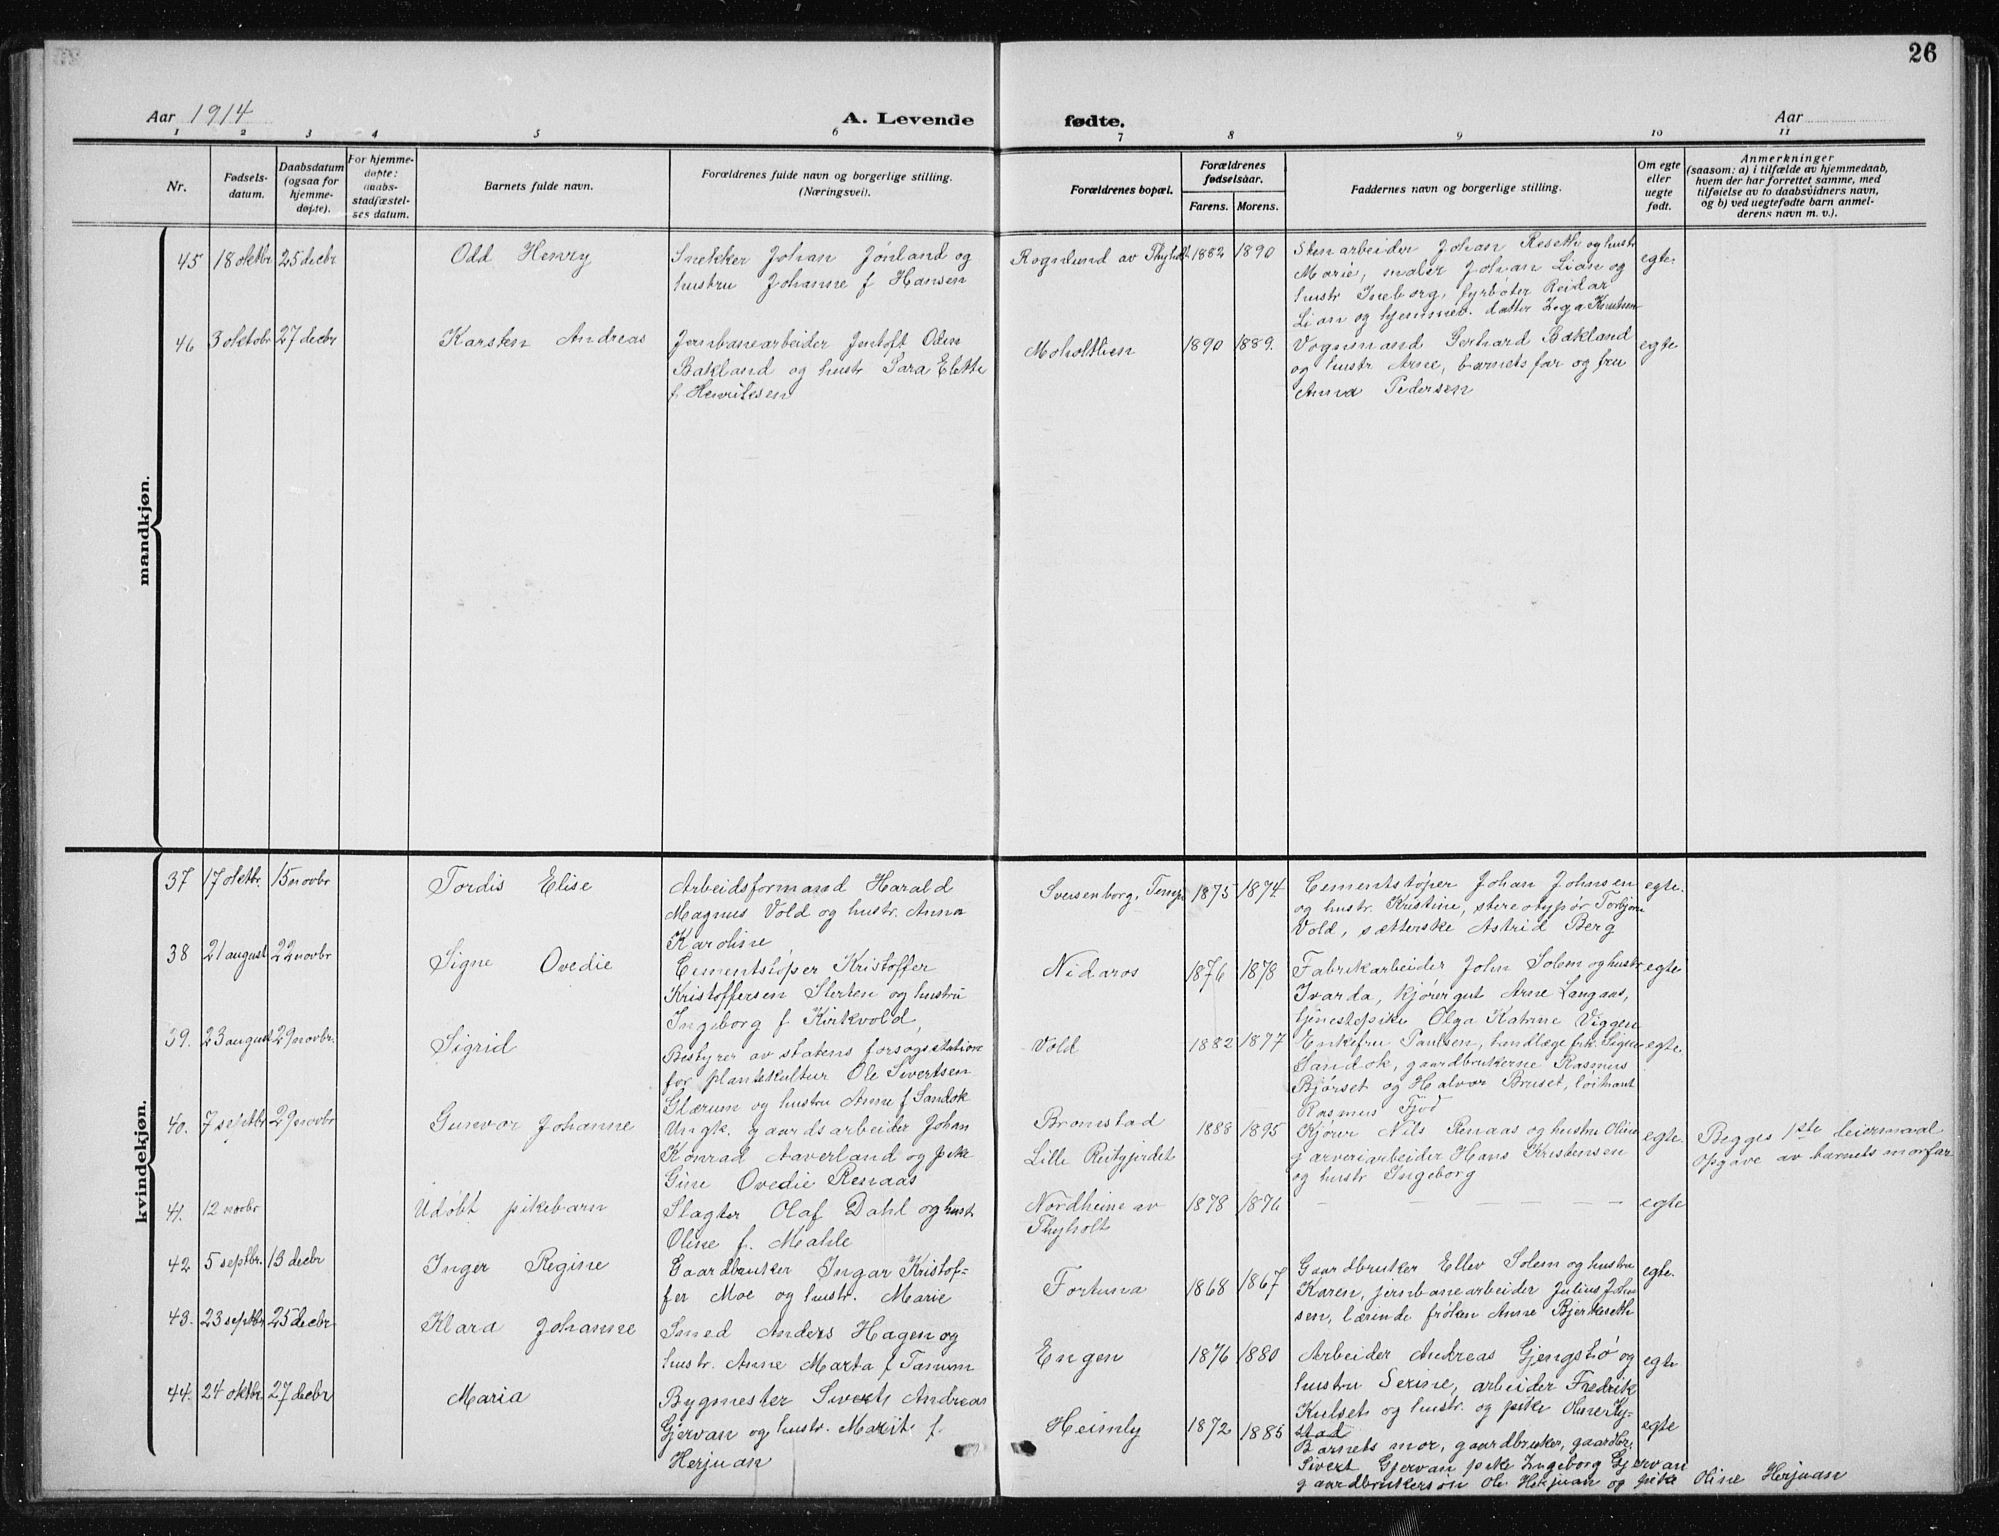 26
Aar 1914
A. Levende
fødte.
Aar
1 2 3 4 5 6 7 8 9 10 11
Nr.
Fødsels-
datum.
Daabsdatum
(ogsaa for
hjemme-
døpte).
For hjemme-
døpte:
daabs-
stadfæstel-
ses datum.
Barnets fulde navn.
Forældrenes fulde navn og borgerlige stilling.
(Næringsvei).
Forældrenes bopæl.
Forældrenes
fødselsaar.
Farens. Morens.
Faddernes navn og borgerlige stilling.
Om egte
eller
uegte
født.
Anmerkninger
(saasom: a) i tilfælde av hjemmedaab,
hvem der har forrettet samme, med
tilføielse av to daabsvidners navn,
og b) ved uegtefødte barn anmel-
derens navn m. v.).
mandkjøn.
45 18 oktbr 25 decbr
Odd Henry
Snekker Johan Jønland og
hustru Johanne f Hansen
Rognlund av Thyholt
1882 1890
Stenarbeider Johan Reseth og hustr
Marie, maler Johan Lian og
hustr Ingeborg, fyrbøter Reidar
Lian og hjemmev. datter Inga Knutsen
egte.
46 3 oktobr 27 decbr
Karsten Andreas
Jernbanearbeider Jentoft Odin
Bakland og hustr Sara Elette
f. Henriksen
Moholtlien
1890 1889.
Vognmand Gerhard Bakland
og hustr Arne, barnets far og fru
Anna Pedersen
egte
kvindekjøn.
37 17 oktbr. 15 novbr
Tordis Elise
Arbeidsformand Harald
Magnus Vold og hustr. Anna
Karoline
Sverresborg, Tempe
1875 1874.
Cementstøper Johan Johnsen
og hustr. Kristine, stereotypør Torbjørn
Vold, sætterske Astrid Berg
egte.
38 21 august 22 novbr
Signe Ovedie
Cementstøper Kristoffer
Kristoffersen Slerten og hustru
Ingeborg f Kirkvold,
Nidaros
1876 1878
Fabrikarbeider John Solem og hustr
Ivarda, kjørergut Arne Langaas,
tjenestepike Olga Katrine Viggen
egte
39. 23 august 29 novbr.
Sigrid
Bestyrer av statens forsøgsstation
for plantekultur Ole Sivertsen
Glærum og hustru Anne f Sandok
Vold
1882 1877
Enkefru Paulsen, tandlæge frk. Signe
Sandok, gaardbrukerne Rasmus
Bjørset og Halvor Bruset, løitnant
Rasmus Fjød
egte.
40. 7 septbr 29 novbr
Gunvor Johanne
Ungk. gaardsarbeider Johan
Konrad Aaverland og pike
Gine Ovedie Renaas
Bromstad
Lille Reitgjerdet
1888 1895
Kjører Nils Renaas og hustru Oline
garveriarbeider Hans Kristensen
og hustr Ingeborg
egte
Begges 1ste leiermaal
opgave av barnets morfar
41. 12 novbr
Udøbt pikebarn
Slagter Olaf Dahl og hustr
Oline f. Mahle
Nordheim av
Thyholt
1878 1876
— — — — —
egte
42 5 septbr. 13 decbr
Inger Regine
Gaardbruker Ingar Kristof-
fer Moe og hustr. Marie
Fortuna
1868 1867
Gaardbruker Ellev Solem og hustru
Karen, jernbanearbeider Julius John
sen, lærinde frøken Anne Bjerkeseth
egte.
43. 23 septbr 25 decbr
Klara Johanne
Smed Anders Hagen og
hustr. Anne Marta f Tanum
Engen
1876 1880
Arbeider Andreas Gjengstø og
hustru Serine, arbeider Fredrik
Kulset og hustr. og pike Oline Hy-
stad
egte
44. 24 oktbr. 27 decbr
Maria
Bygmester Sivert Andreas
Gjervan og hustr. Marit f.
Herjuan
Heimly
1872 1885
Barnets mor, gaardbruker, gaardbr.
Sivert Gjervan pike Ingeborg Gjervan
gaardbrukersøn Ole Herjuan og pike Oline Herjuan
egte